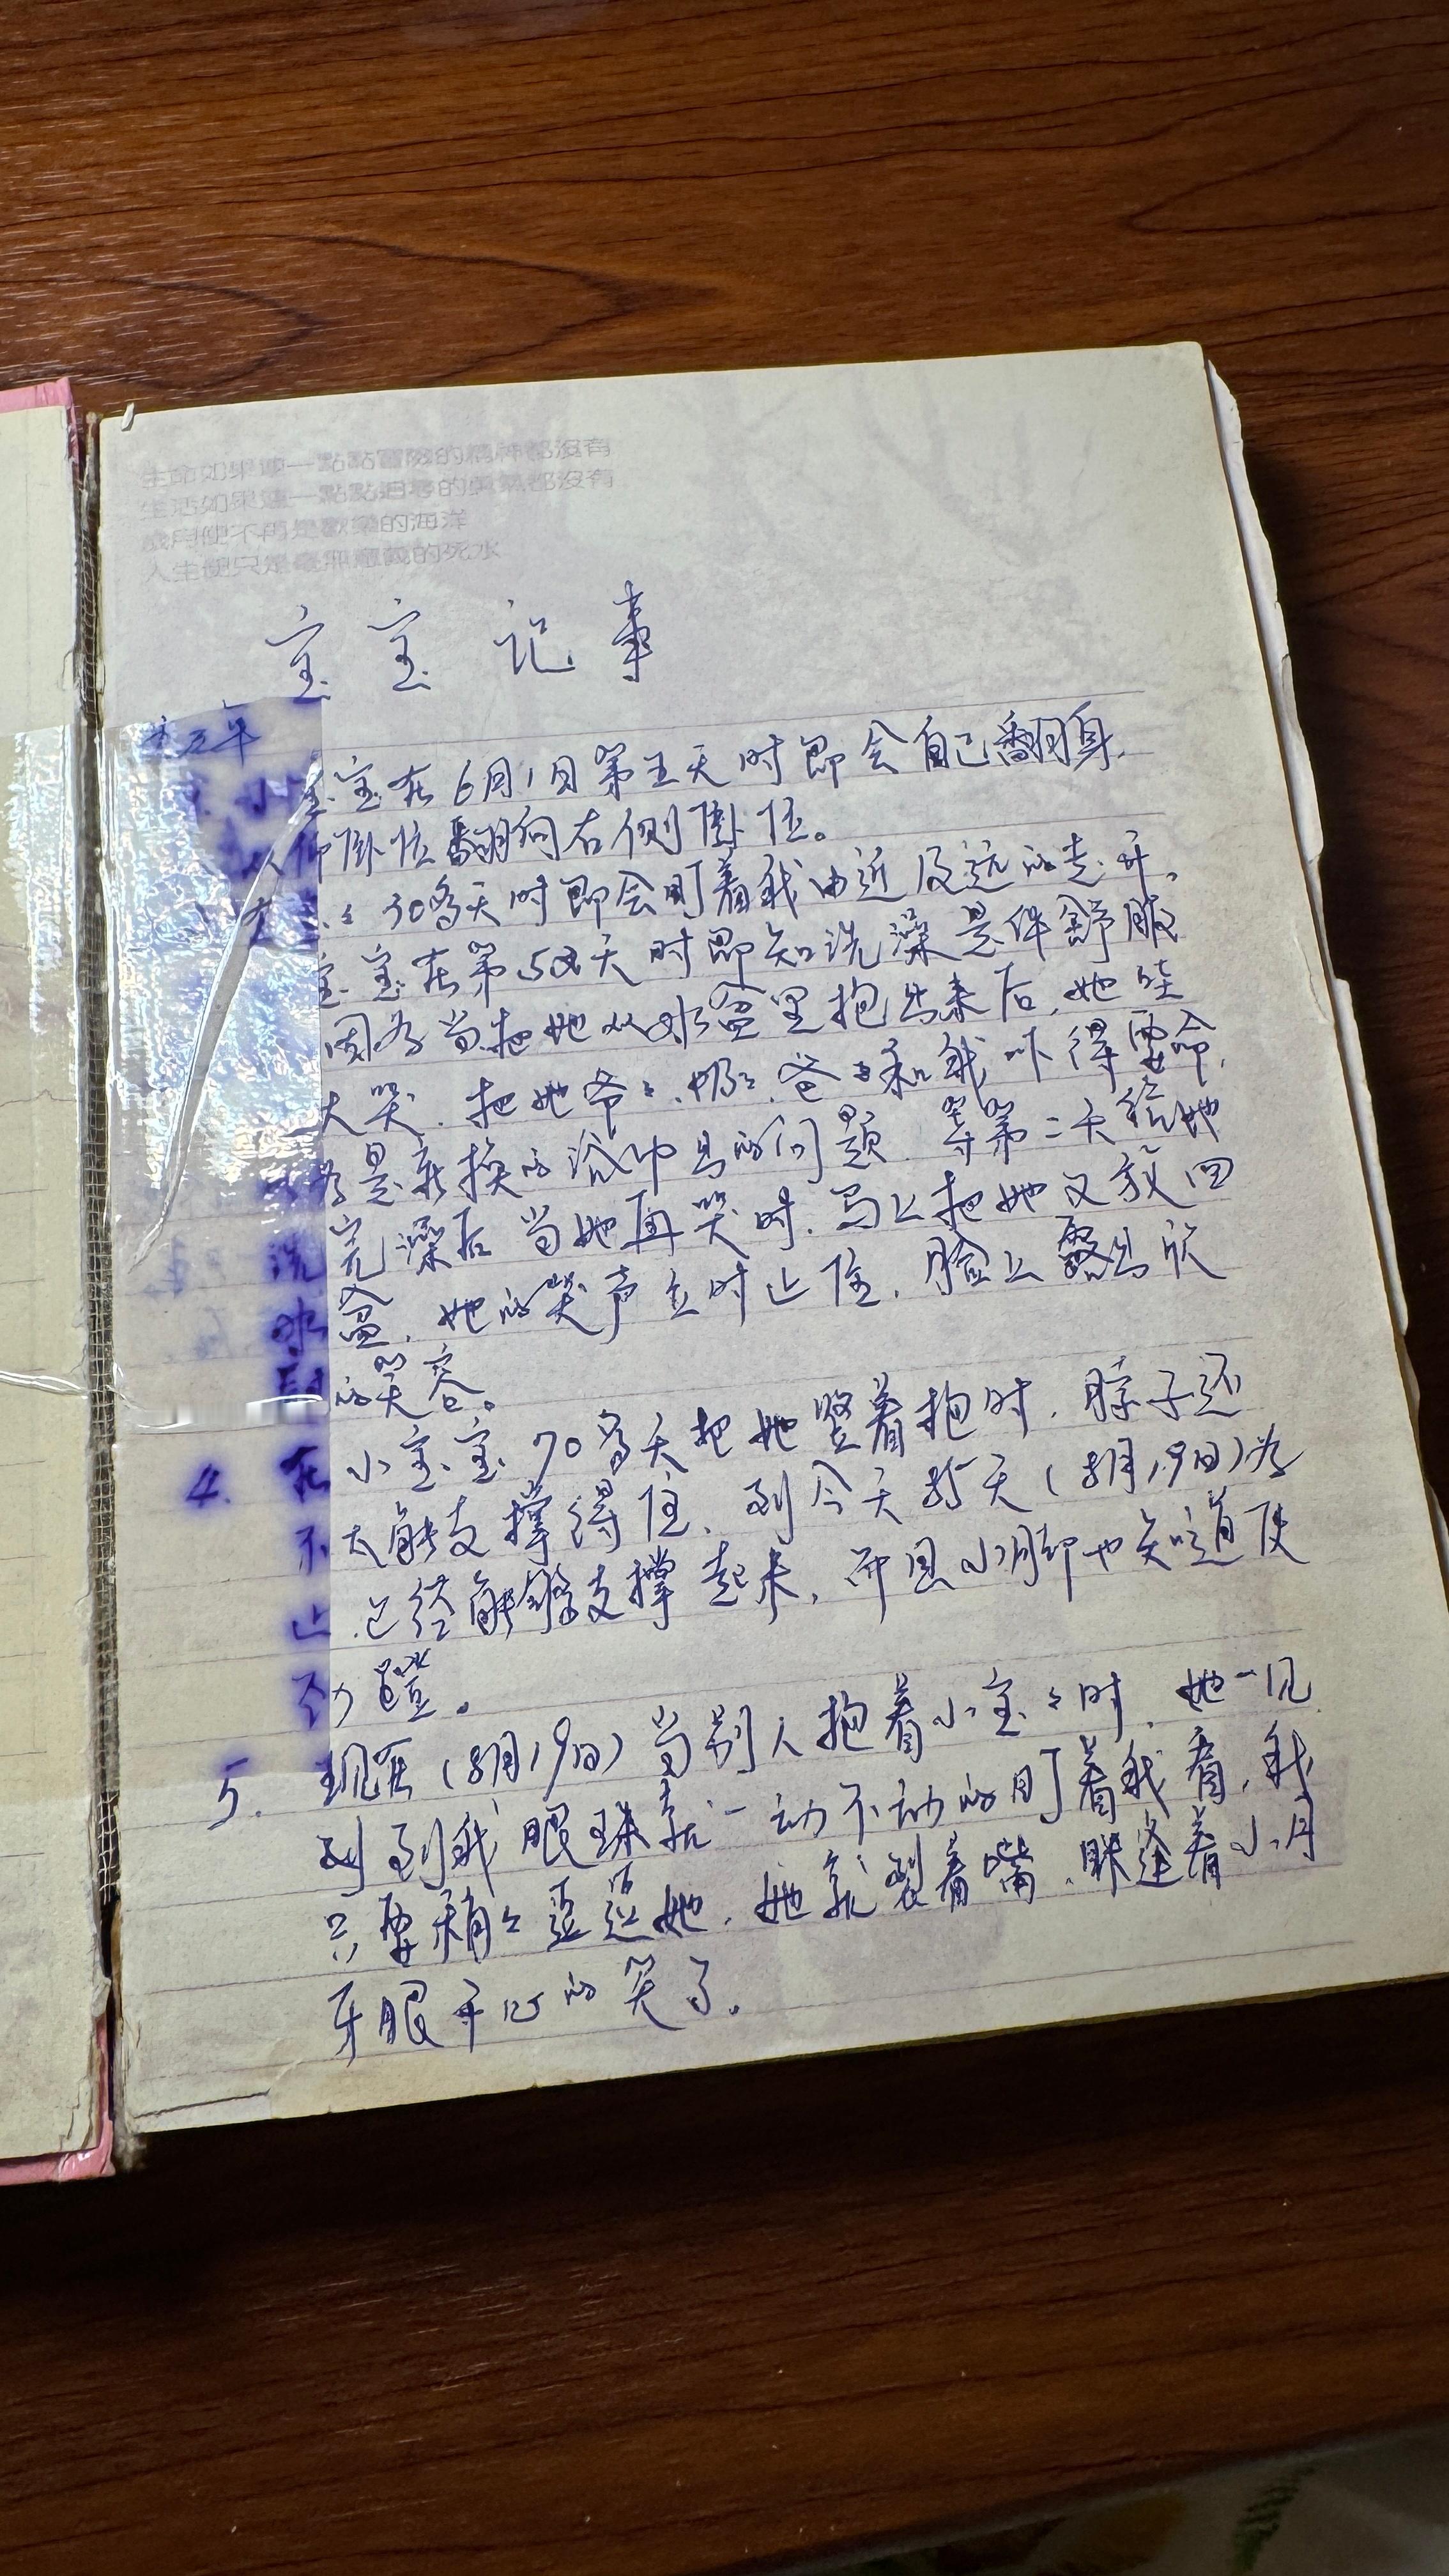 生命如果連一點點冒險的精神都沒有
生活如果連一點點追尋的勇氣都沒有
歲月便不再是歡樂的海洋
人生便只是毫無意義的死水
宝宝记事
五年
小宝宝在6月1日第五天时即会自己翻身,
从仰卧位翻向右侧卧位。
宝々30多天时即会盯着我由近及远的走开。
宝宝在第58天时即知洗澡是件舒服
因为当把她从水盆里抱出来后,她哇
大哭.把她爷々.奶々.爸々和我吓得要命,
为是新换的浴巾的问题.等第二天给她
洗完澡后当她再哭时.马上把她又放回
水盆.她的哭声立时止住.脸上露出欣
慰的笑容。
4. 在小宝宝70多天把她竖着抱时.脖子还
不太能支撑得住.到今天85天(8月19日)为
止.已经能够支撑起来,而且小脚也知道使
劲蹬。
5. 现在(8月19日)当别人抱着小宝々时.她一见
到我眼珠就一动不动的盯着我看,我
只要稍々逗逗她.她就裂着嘴.眯逢着小月
牙眼开心的笑了。